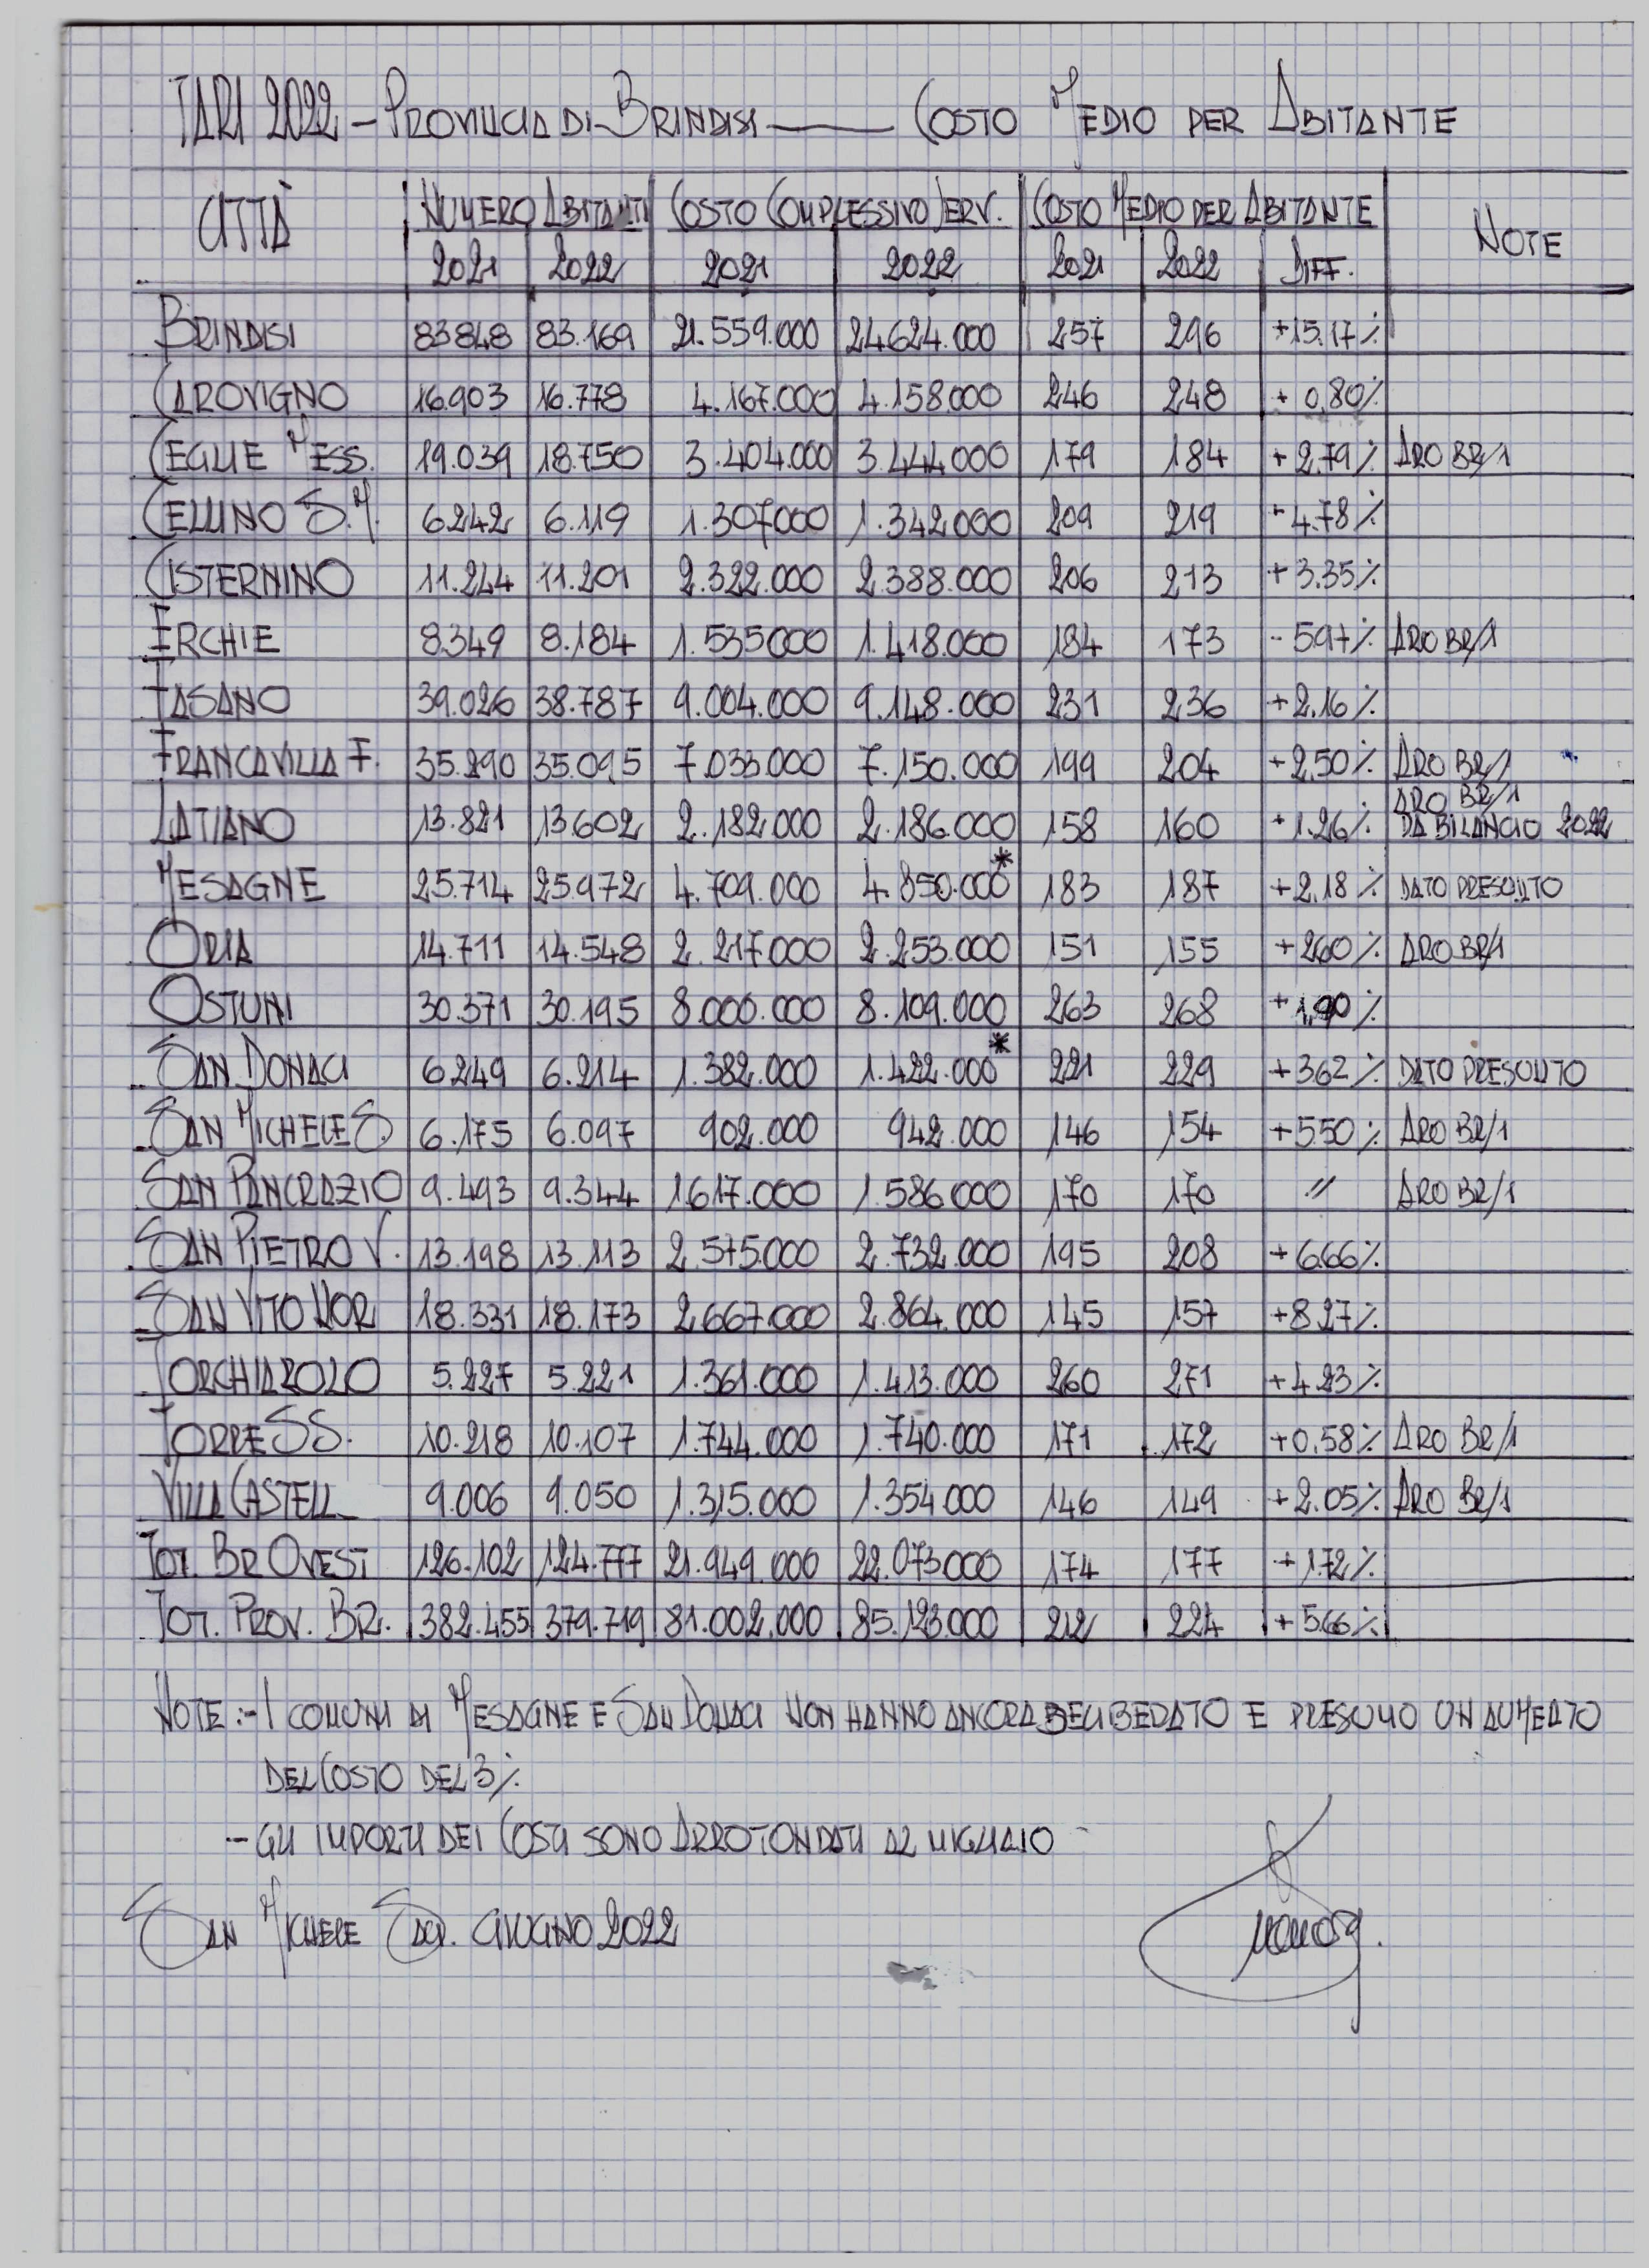 TARI 2022 - PROVINCIA DI BRINDISI — COSTO MEDIO PER ABITANTE
CITTÀ NUMERO ABITANTI COSTO COMPLESSIVO SERV. COSTO MEDIO PER ABITANTE NOTE
2021 2022 2021 2022 2021 2022 DIFF.
BRINDISI 83848 83.169 21.559.000 24624.000 257 296 +15.17%
CAROVIGNO 16.903 16.778 4.167.000 4.158.000 246 248 + 0,80%
CEGLIE MESS. 19.039 18.750 3.404.000 3.444.000 179 184 + 2,79% ARO BR/1
CELLINO S.M. 6.242 6.119 1.307000 1.342.000 209 219 + 4.78%
CISTERNINO 11.244 11.201 2.322.000 2.388.000 206 213 + 3.35%
ERCHIE 8.349 8.184 1.535000 1.418.000 184 173 - 5.97% ARO BR/1
FASANO 39.026 38.787 9.004.000 9.148.000 231 236 +2,16%
FRANCAVILLA F. 35.290 35.095 7.033.000 7.150.000 199 204 +2,50% ARO BR/1
LATIANO 13.821 13.602 2.182.000 2.186.000 158 160 +1.26% ARO BR/1
DA BILANCIO 2022
MESAGNE 25.714 25.972 4.709.000 4.850.000* 183 187 +2,18% DATO PRESUNTO
ORIA 14.711 14.548 2.217.000 2.253.000 151 155 +2,60% ARO BR/1
OSTUNI 30.371 30.195 8.000.000 8.109.000 263 268 +1,90%
SAN DONACI 6.249 6.214 1.382.000 1.422.000* 221 229 +3,62% DATO PRESUNTO
SAN MICHELE S. 6.175 6.097 902.000 942.000 146 154 +5,50% ARO BR/1
SAN PANCRAZIO 9.493 9.344 1.617.000 1.586.000 170 170 // ARO BR/1
SAN PIETRO V. 13.198 13.113 2.575.000 2.732.000 195 208 +6,66%
SAN VITO NOR 18.331 18.173 2.667.000 2.864.000 145 157 +8,27%
TORCHIAROLO 5.227 5.221 1.361.000 1.413.000 260 271 +4,23%
TORRE SS. 10.218 10.107 1.744.000 1.740.000 171 172 +0,58% ARO BR/1
VILLA CASTELL 9.006 9.050 1.315.000 1.354.000 146 149 +2.05% ARO BR/1
TOT. BR OVEST 126.102 124.777 21.949.000 22.073.000 174 177 +1.72%
TOT. PROV. BR. 382.455 379.719 81.002.000 85.123.000 212 224 +5,66%
NOTE :- I COMUNI DI MESAGNE E SAN DONACI NON HANNO ANCORA DELIBERATO E PRESUMO UN AUMENTO
DEL COSTO DEL 3%
- GLI IMPORTI DEI COSTI SONO ARROTONDATI AL MIGLIAIO
SAN MICHELE SAL. GIUGNO 2022